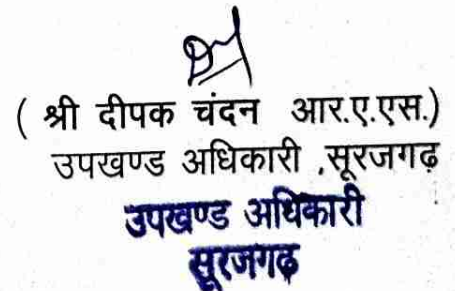 ( श्री दीपक चंदन आर.ए.एस.)
उपखण्ड अधिकारी ,सूरजगढ़
उपखण्ड अधिकारी
सूरजगढ़